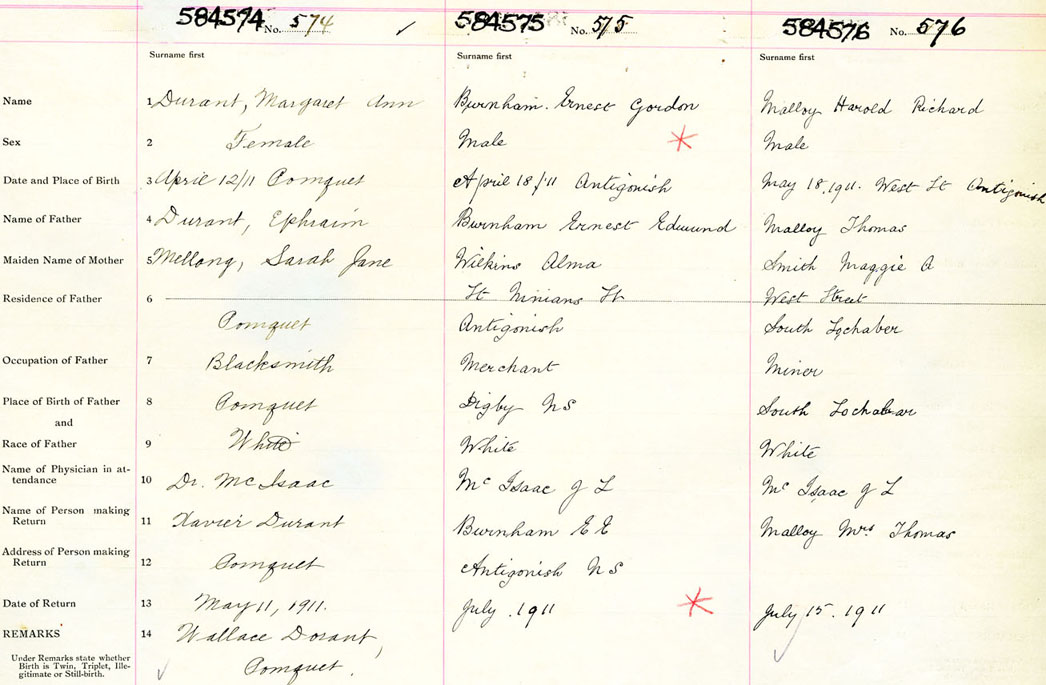 584574 No. 574 584575 No. 575 584576 No. 576
Surname first Surname first Surname first
Name 1 Durant, Margaret Ann Burnham. Ernest Gordon Malloy Harold Richard
Sex 2 Female Male Male
Date and Place of Birth 3 April 12/11 Pomquet April 18/11 Antigonish May 18, 1911. West St Antigonish
Name of Father 4 Durant, Ephraim Burnham Ernest Edmund Malloy Thomas
Maiden Name of Mother 5 Mellong, Sarah Jane Wilkins Alma Smith Maggie A
Residence of Father 6 St Ninians St West Street
Pomquet Antigonish South Lochaber
Occupation of Father 7 Blacksmith Merchant Miner
Place of Birth of Father 8 Pomquet Digby NS South Lochaber
and
Race of Father 9 White White White
Name of Physician in at-
tendance 10 Dr. McIsaac Mc Isaac J L Mc Isaac J L
Name of Person making
Return 11 Xavier Durant Burnham E E Malloy Mrs Thomas
Address of Person making
Return 12 Pomquet Antigonish NS
Date of Return 13 May 11, 1911. July . 1911 July 15. 1911
REMARKS 14 Wallace Dorant,
Under Remarks state whether
Birth is Twin, Triplet, Ille-
gitimate or Still-birth. Pomquet.